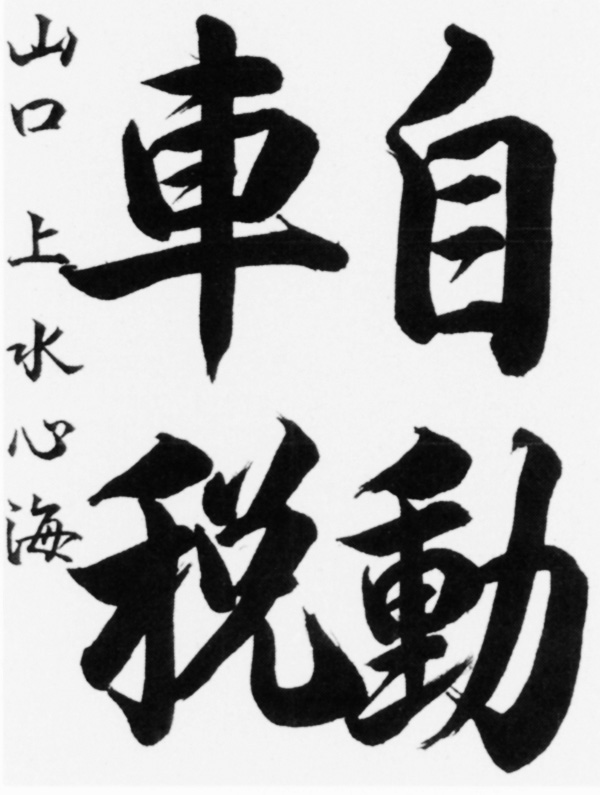 自動
車税
山口 上水心海